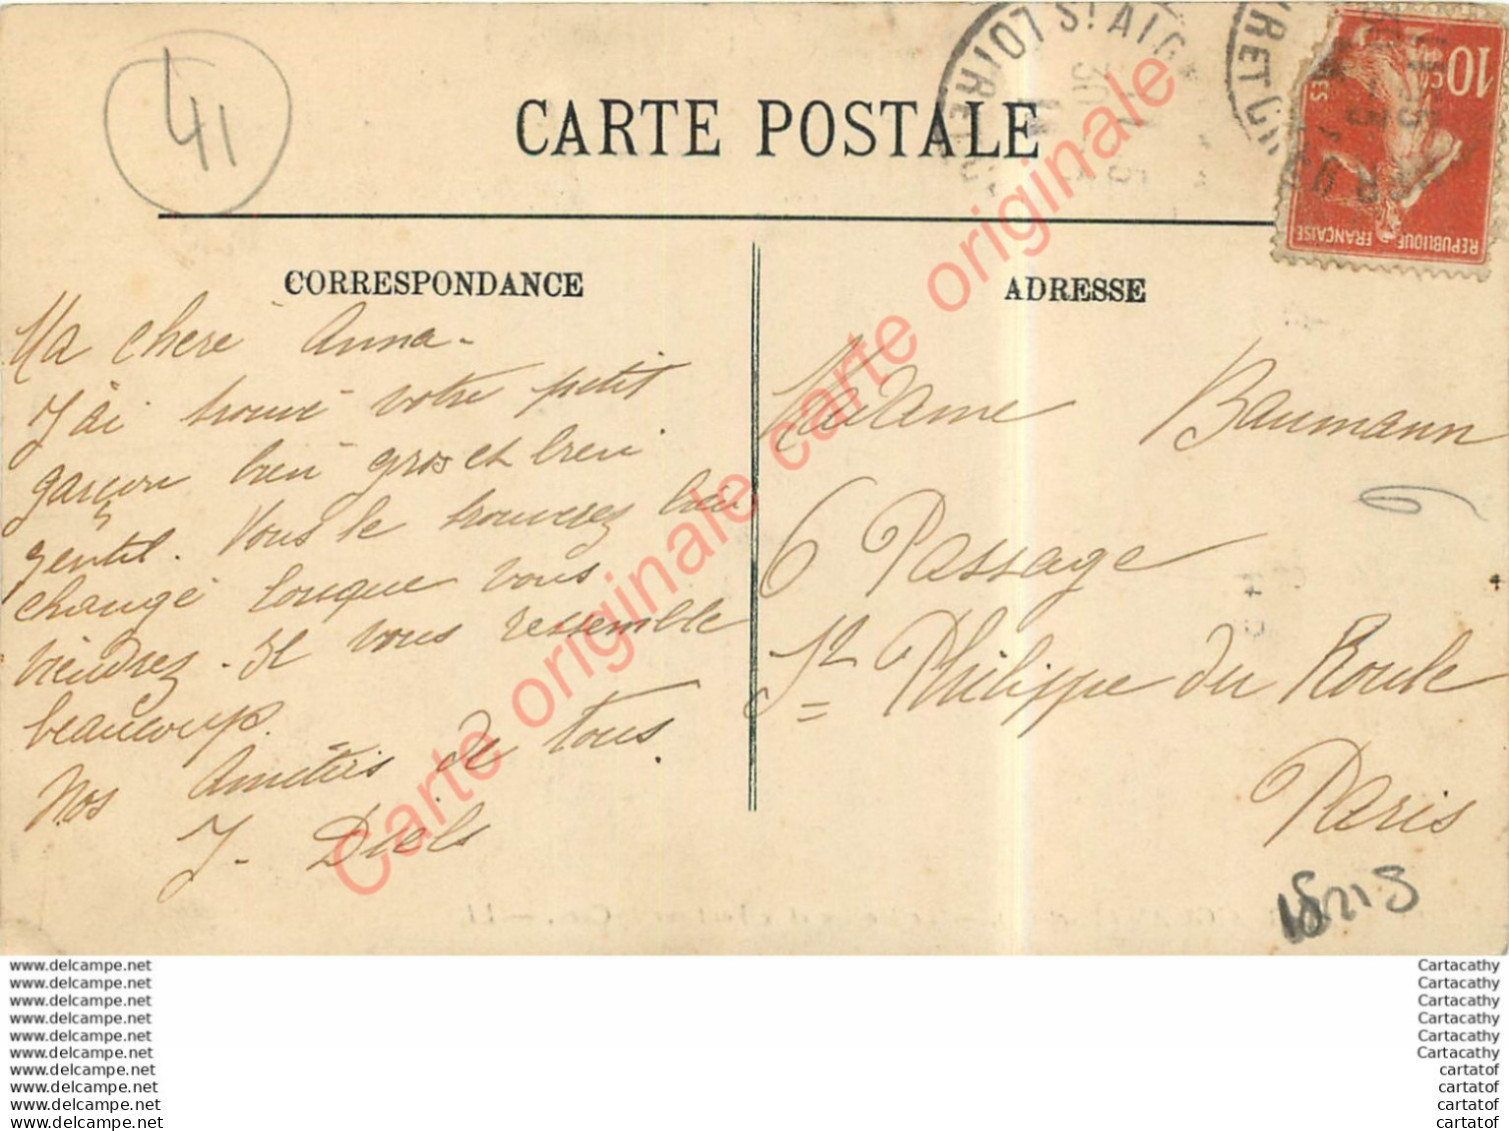 41
CARTE POSTALE
LOIRET-CHER 107 ST AIG
10c
RÉPUBLIQUE FRANÇAISE
CORRESPONDANCE
Ma chere Anna-
J'ai trouvé votre petit
garçon bien gros et bien
gentil. Vous le trouverez bien
changé lorsque vous
viendrez. Il vous ressemble
beaucoup.
Nos Amitiés de tous.
J. Diels
ADRESSE
Madame Baumann
6 Passage
St Philippe du Roule
Paris
Carte originale carte originale carte originale
www.delcampe.net
www.delcampe.net
www.delcampe.net
www.delcampe.net
www.delcampe.net
www.delcampe.net
www.delcampe.net
www.delcampe.net
www.delcampe.net
www.delcampe.net
Cartacathy
Cartacathy
Cartacathy
Cartacathy
Cartacathy
Cartacathy
cartatof
cartatof
cartatof
cartatof